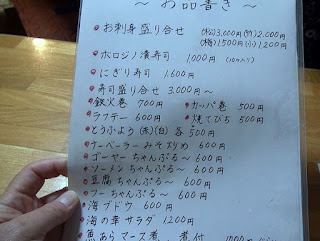 ～ お品書き ～
お刺身盛り合せ (松)3,000円(竹)2,000円
(梅)1500円(小)1,200円
ホロジノ漬寿司 1000円(10カン入り)
にぎり寿司 1,600円
寿司盛り合せ 3,000円～
鉄火巻 700円 カッパ巻 500円
ラフテー 600円 焼てびち 500円
とうふよう(赤)(白)各 500円
ナーベーラー みそ炒め 600円
ゴーヤーちゃんぷる～ 600円
ソーメンちゃんぷる～ 600円
豆腐ちゃんぷる～ 600円
フーちゃんぷる～ 600円
海ブドウ 600円
海の幸サラダ 1,200円
魚あらマース煮、煮付